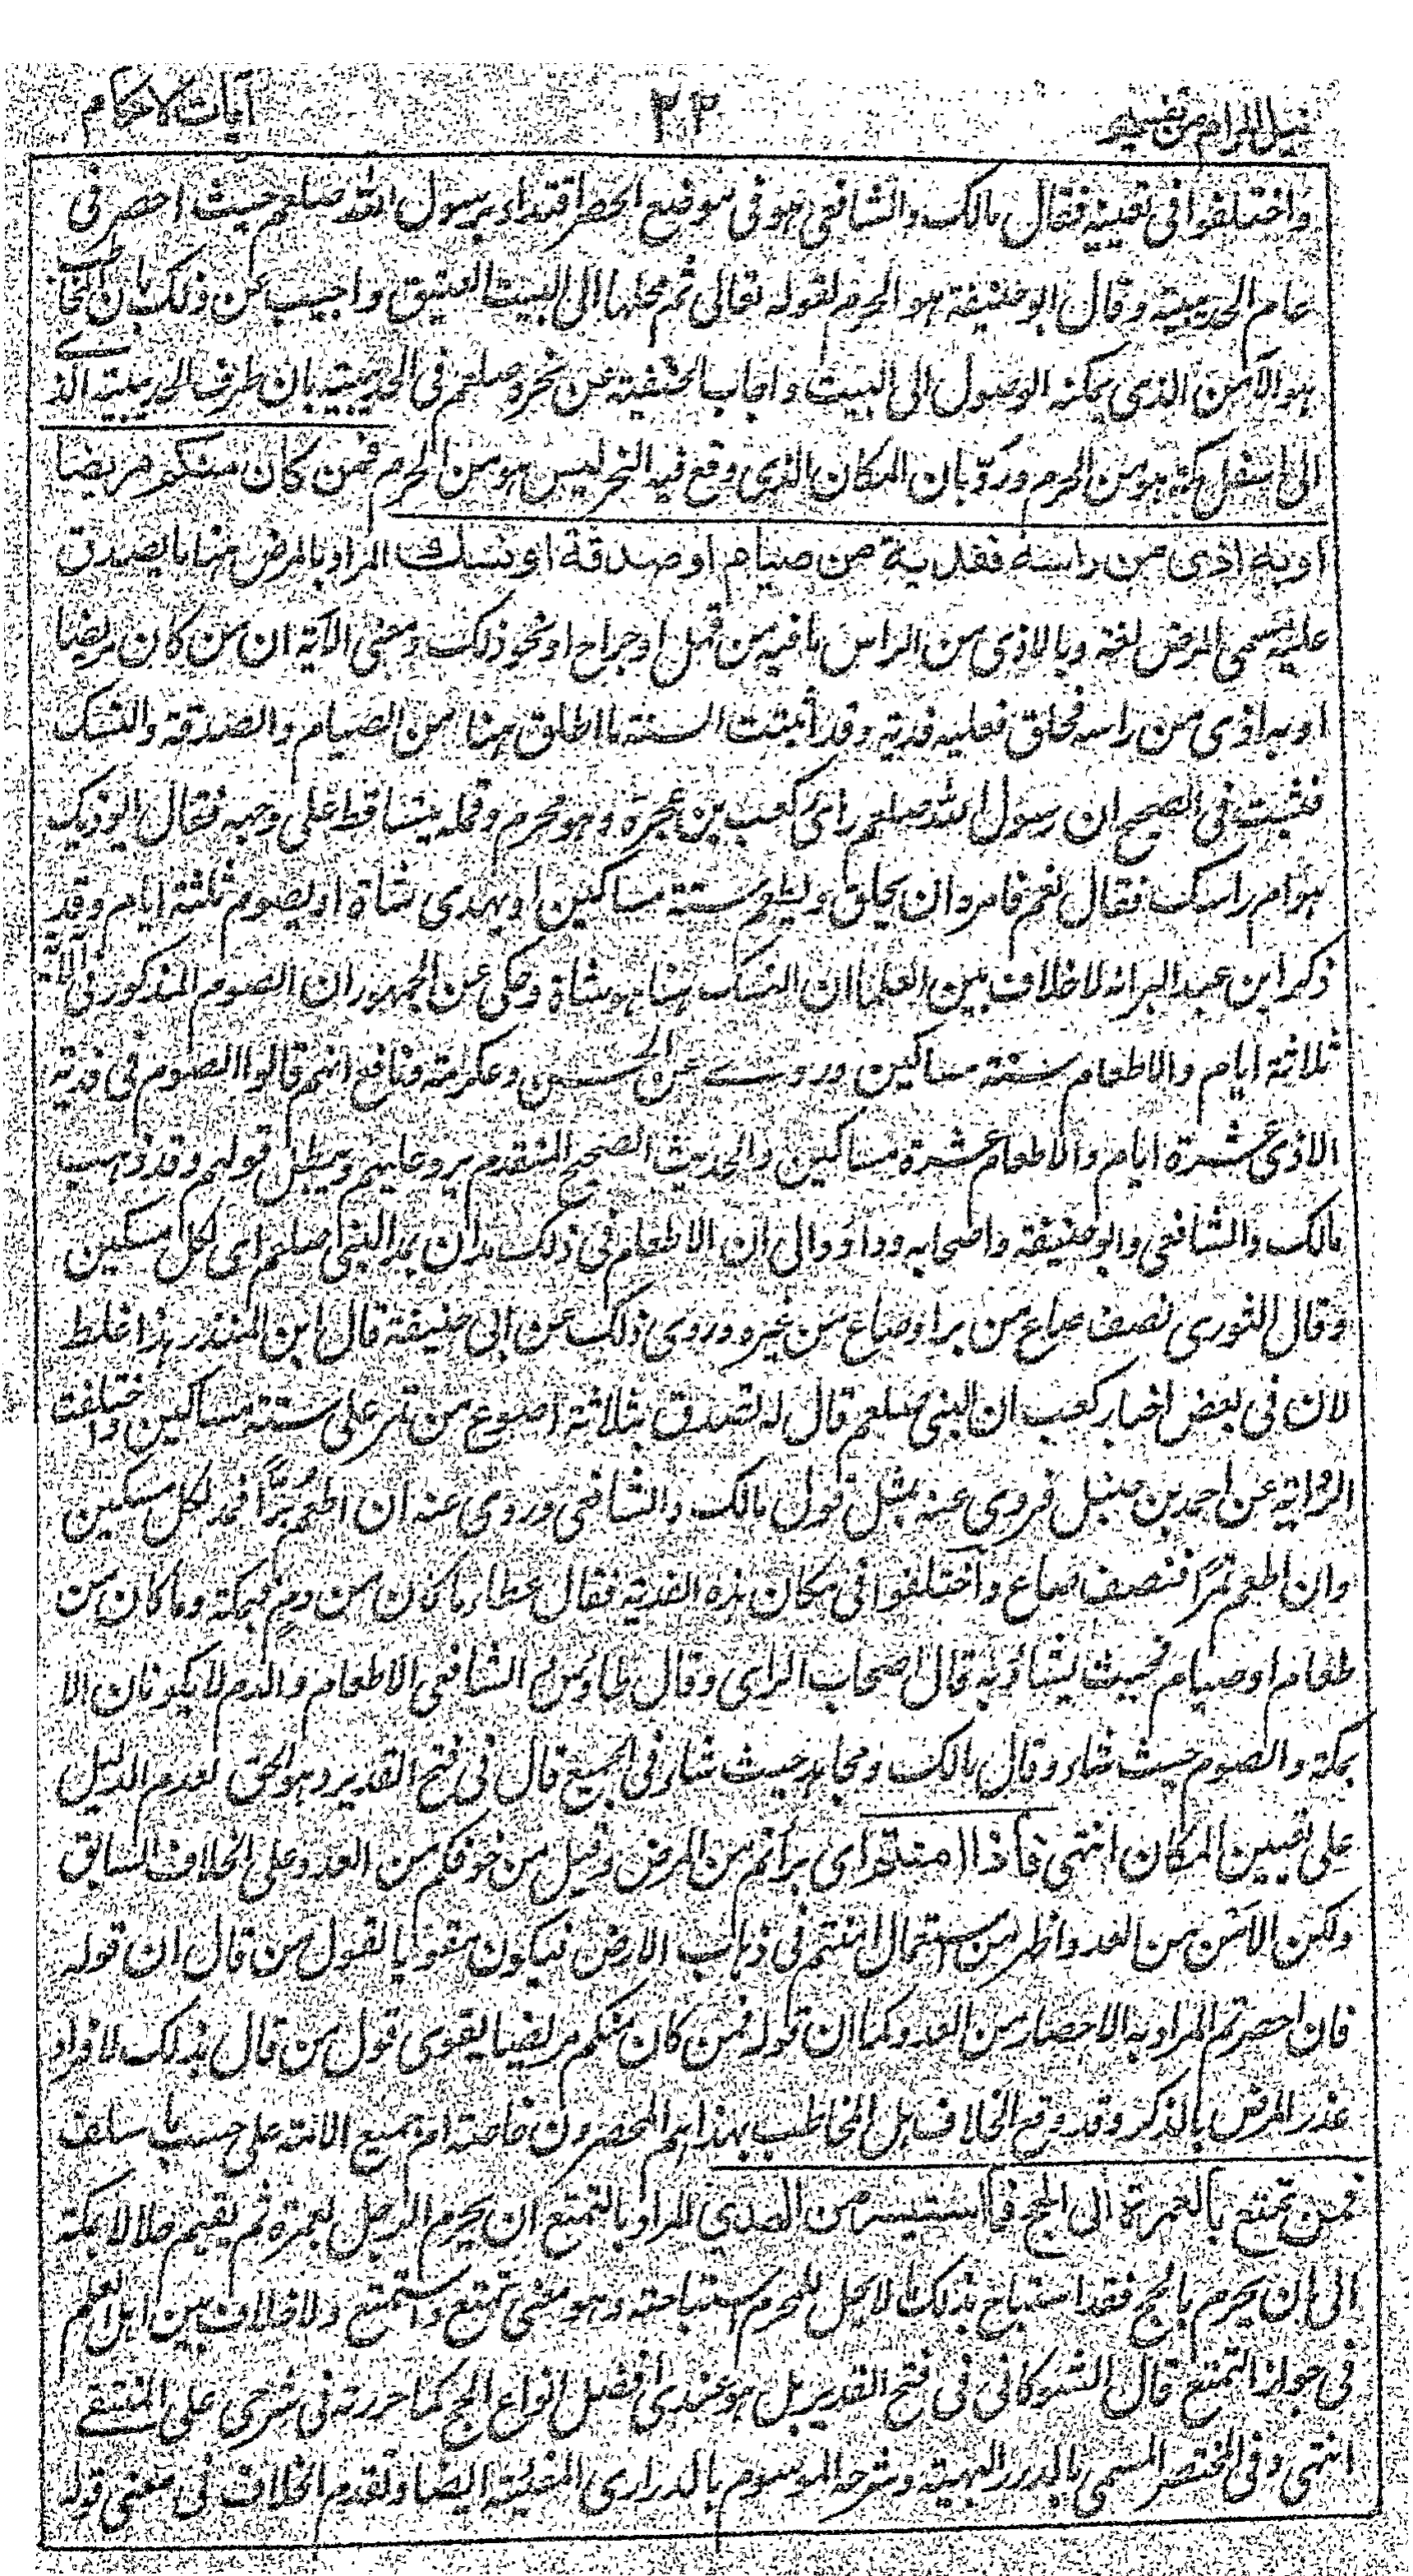 نيل المرام من تفسير
٢٢
آيات الاحكام
واختلفوا فى تعيينه فقال مالك والشافعى هو فى موضع الحصر اقتداء برسول الله صلعم حيث احصر فى
عام الحديبية وقال ابو حنيفة هو الحرم لقوله تعالى ثم محلها الى البيت العتيق واجيب عن ذلك بان المخاطب
هو الآمن الذى يمكنه الوصول الى البيت واجاب الحنفية عن نحره صلعم فى الحديبية بان طرف الحديبية الذى
الى اسفل مكة هو من الحرم وردّ بان المكان الذى وقع فيه النحر ليس هو من الحرم فمن كان منكم مريضا
او به اذى من راسه ففدية من صيام او صدقة او نسك المراد بالمرض هنا ما يصدق
عليه مسمى المرض لغة وبالاذى من الراس ما فيه من قمل او جراح او نحو ذلك ومعنى الآية ان من كان مريضا
او به اذى من راسه فحلق فعليه فدية وقد أثبتت السنة ما اطلق هنا من الصيام والصدقة والنسك
فثبت فى الصحيح ان رسول الله صلعم راى كعب بن عجرة وهو محرم وقمله يتساقط على وجهه فقال ايوذيك
هوام راسك فقال نعم فامره ان يحلق ويطعم ستة مساكين او يهدى شاة او يصوم ثلثة ايام وقد
ذكر ابن عبد البر انه لا خلاف بين العلما ان النسك هنا هو شاة وحكى عن الجمهور ان الصوم المذكور فى الآية
ثلاثة ايام والاطعام ستة مساكين وروے عن الحسن وعكرمة ونافع انهم قالوا الصوم فى فدية
الاذى عشرة ايام والاطعام عشرة مساكين والحديث الصحيح المتقدم يرد عليهم ويبطل قولهم وقد ذهب
مالك والشافعى وابو حنيفة واصحابه وداؤد الى ان الاطعام فى ذلك مدان بمد النبى صلعم اى لكل مسكين
وقال الثورى نصف صاع من بر او صاع من غيره وروى ذلك عن ابى حنيفة قال ابن المنذر هذا غلط
لان فى بعض اخبار كعب ان النبى صلعم قال له تصدق بثلاثة اصوع من تمر على ستة مساكين واختلفت
الرواية عن احمد بن حنبل فروى عنه مثل قول مالك والشافعى وروى عنه ان اطعم بُرًّا فمد لكل مسكين
وان اطعم تمرًا فنصف صاع واختلفوا فى مكان هذه الفدية فقال عطاء ما كان من دمٍ فبمكة وما كان من
طعام او صيام فحيث يشاء وبه قال اصحاب الراى وقال طاؤس الشافعى الاطعام والدم لا يكونان الا
بمكة والصوم حيث شاء وقال مالك ومجاهد حيث شاء فى الجميع قال فى فتح القدير وهو الحق لعدم الدليل
على تعيين المكان انتهى فاذا امنتم اى براتم من المرض وقيل من خوفكم من العدو على الخلاف السابق
ولكن الامن من العدو اظهر من استعمال امنتم فى ذهاب الارض فيكون مقويا لقول من قال ان قوله
فان احصرتم المراد به الاحصار من العدو كما ان قوله فمن كان منكم مريضا يقوى قول من قال بذلك لافراد
عذر المرض بالذكر وقد وقع الخلاف هل المخاطب بهذا هم المحصرون خاصة ام جميع الامة على حسب ما سلف
فمن تمتع بالعمرة الى الحج فما استيسر من الهدي المراد بالتمتع ان يحرم الرجل بعمرة ثم يقيم حلالا بمكة
الى ان يحرم بالحج فقد استباح بذلك ما لا يحل للمحرم استباحته وهو معنى تمتع واستمتع ولا خلاف بين اهل العلم
فى جواز التمتع قال الشوكانى فى فتح القدير بل هو عندى افضل انواع الحج كما حررته فى شرحى على المنتقے
انتهى وفى المختصر المسمى بالدرر البهية وشرحه الموسوم بالدرارى المضيئة ايضا وتقدم الخلاف فى معنى قوله